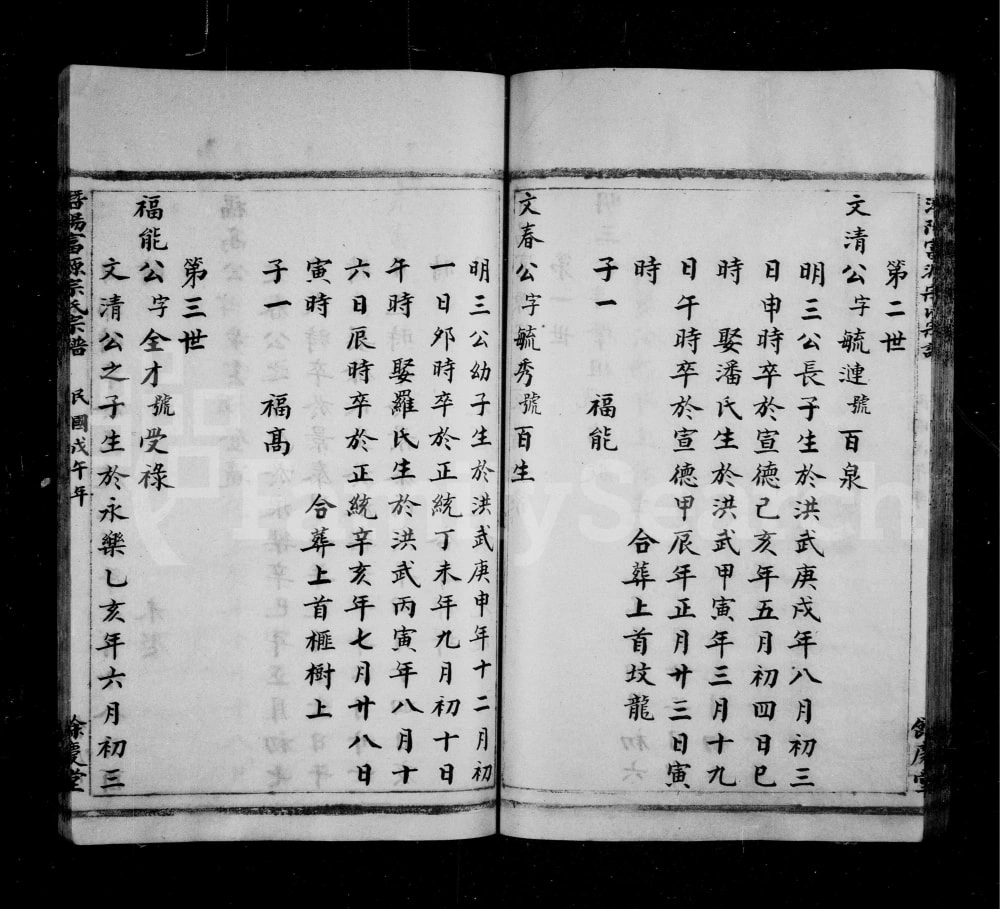 第二世
文清公字毓漣號百泉
明三公長子生於洪武庚戌年八月初三
日申時卒於宣德己亥年五月初四日巳
時　娶潘氏生於洪武甲寅年三月十九
日午時卒於宣德甲辰年正月廿三日寅
時　合葬上首坟龍
子一　福能
文春公字毓秀號百生
明三公幼子生於洪武庚申年十二月初
一日卯時卒於正統丁未年九月初十日
午時　娶羅氏生於洪武丙寅年八月十
六日辰時卒於正統辛亥年七月廿八日
寅時　合葬上首榧樹上
子一　福高
第三世
福能公字全才號受祿
文清公之子生於永樂乙亥年六月初三
暨陽富源宗氏宗譜　民國戊午年　餘慶堂
FamilySearch